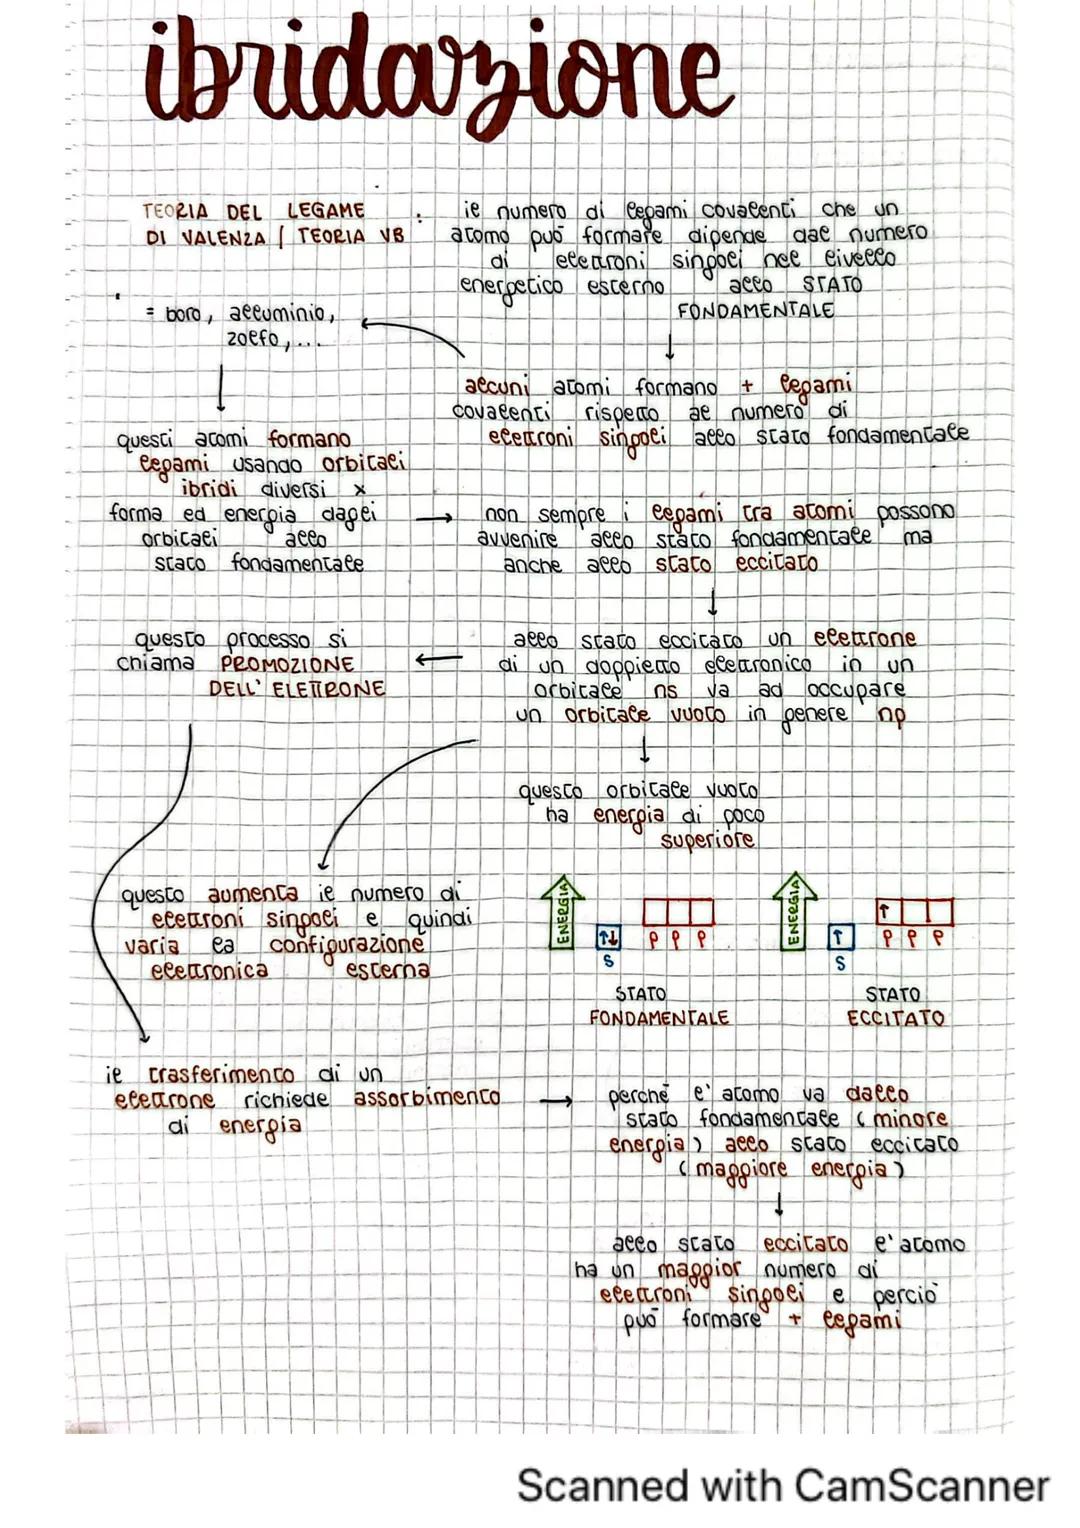 ibridazione
TEORIA DEL LEGAME
DI VALENZA / TEORIA VB :
il numero di legami covalenti che un
atomo può formare dipende dal numero
di elettroni singoli nel livello
energetico esterno allo STATO
FONDAMENTALE
alcuni atomi formano + legami
covalenti rispetto al numero di
elettroni singoli allo stato fondamentale
= boro, alluminio,
zolfo, ...
questi atomi formano
legami usando orbitali
ibridi diversi x
forma ed energia dagli
orbitali allo
stato fondamentale
non sempre i legami tra atomi possono
avvenire allo stato fondamentale ma
anche allo stato eccitato
allo stato eccitato un elettrone
di un doppietto elettronico in un
orbitale ns va ad occupare
un orbitale vuoto in genere np
questo processo si
chiama PROMOZIONE
DELL' ELETTRONE
questo orbitale vuoto
ha energia di poco
superiore
questo aumenta il numero di
elettroni singoli e quindi
varia la configurazione
elettronica esterna
ENERGIA
S
P P P
STATO
FONDAMENTALE
ENERGIA
S
P P P
STATO
ECCITATO
il trasferimento di un
elettrone richiede assorbimento
di energia
perché l'atomo va dallo
stato fondamentale (minore
energia) allo stato eccitato
(maggiore energia)
allo stato eccitato l'atomo
ha un maggior numero di
elettroni singoli e perciò
può formare + legami
Scanned with CamScanner